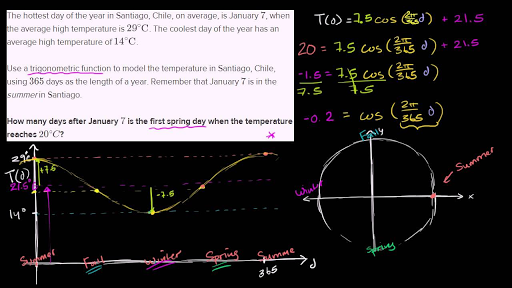 The hottest day of the year in Santiago, Chile, on average, is January 7, when
the average high temperature is 29°C. The coolest day of the year has an
average high temperature of 14°C.
Use a trigonometric function to model the temperature in Santiago, Chile,
using 365 days as the length of a year. Remember that January 7 is in the
summer in Santiago.
How many days after January 7 is the first spring day when the temperature
reaches 20°C?
*
T(d)=7.5cos(2π/365 d)+21.5
20 = 7.5 cos(2π/365 d) + 21.5
-1.5 = 7.5 cos(2π/365 d)
7.5 7.5
-0.2 = cos(2π/365 d)
29°C
T(d)
21.5
14°
+7.5
-7.5
Summer Fall Winter Spring Summe
365
d
Fall
y
Summer
Winter
x
Spring